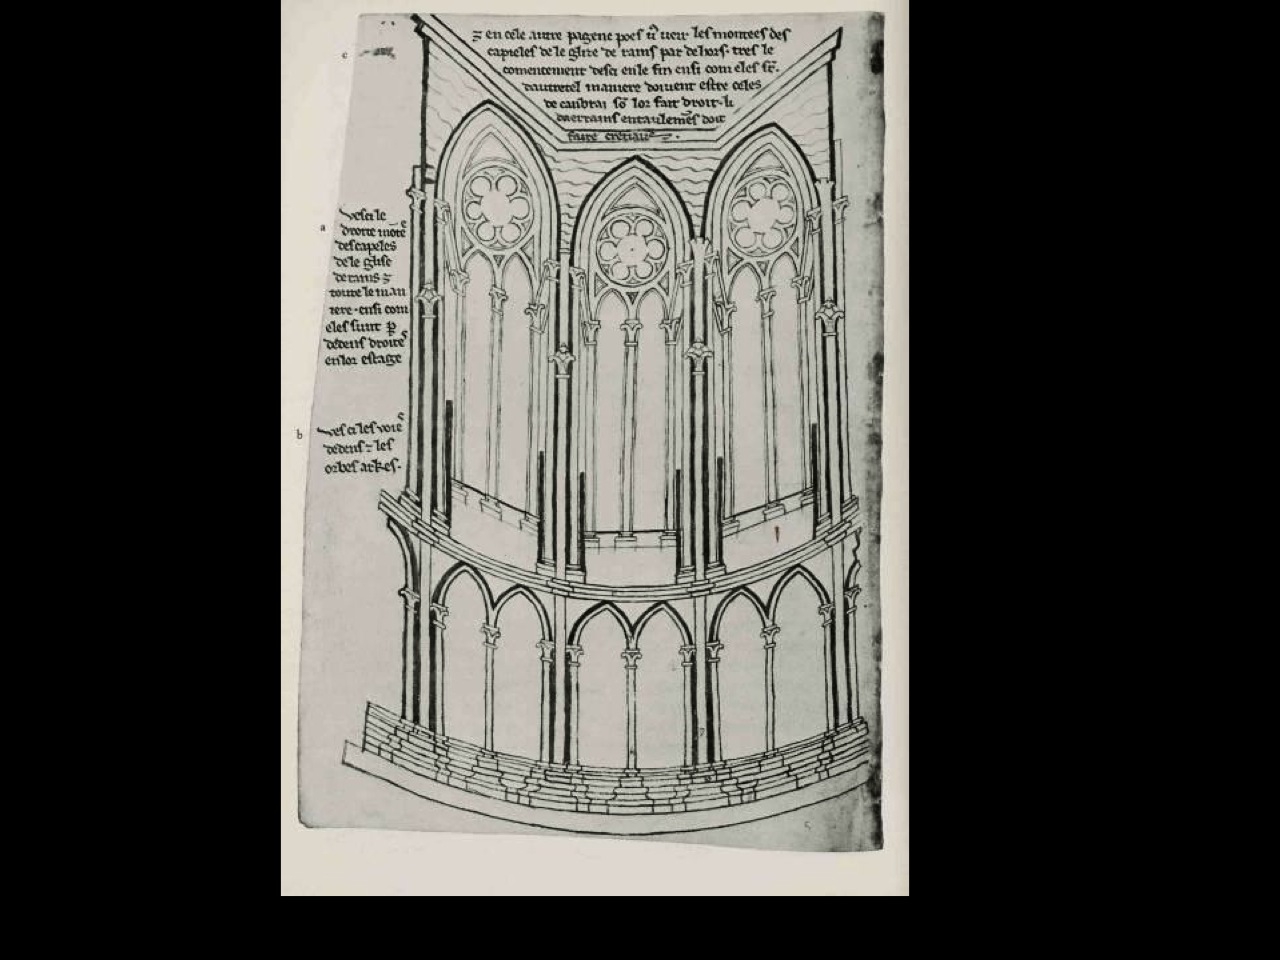 ⁊ en cele autre pagene poes uͦ ueir les montees des
capieles de le glize de rains par dehors. tres le
comencement desci en le fin ensi com eles sūt.
dautretel maniere doiuent estre celes
de canbrai sō lor fait droit. li
daerrains entaulemēs doit
faire cretiaus ⁊.
c
a
vesci le
droite mōtees
des capeles
de le glise
de rains ⁊
toute le man
iere. ensi com
eles sunt ꝑ
dedens droites
en lor estage
b
ves ci les voies
dedens ⁊ les
orbes arkes.